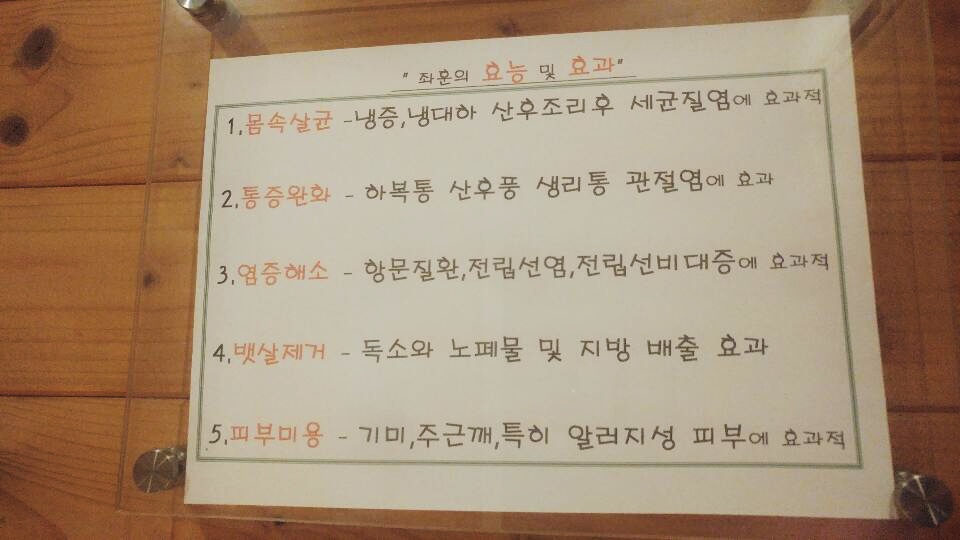 " 좌훈의 효능 및 효과"
1. 몸속살균 -냉증,냉대하 산후조리후 세균질염에 효과적
2. 통증완화 - 하복통 산후풍 생리통 관절염에 효과
3. 염증해소 - 항문질환,전립선염,전립선비대증에 효과적
4. 뱃살제거 - 독소와 노폐물 및 지방 배출 효과
5. 피부미용 - 기미,주근깨,특히 알러지성 피부에 효과적